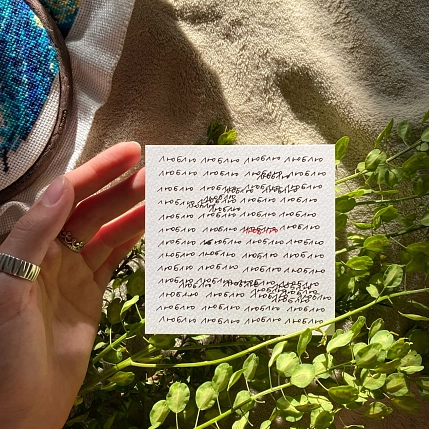 люблю люблю люблю люблю
люблю люблю люблю люблю
люблю люблю люблю люблю
люблю люблю люблю люблю
люблю люблю люблю люблю
люблю люблю люблю люблю
люблю люблю люблю люблю
люблю люблю люблю люблю
люблю люблю люблю люблю
люблю люблю люблю люблю
люблю люблю люблю люблю
люблю люблю люблю люблю
люблю люблю люблю люблю